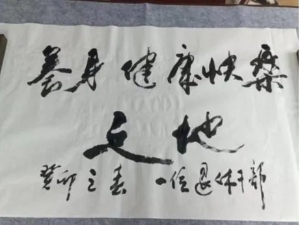 養身健康快樂
天地
癸卯之春 一位退休干部